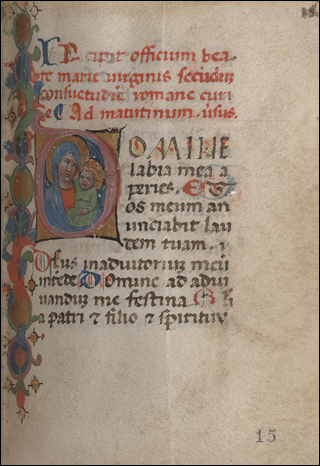 Incipit officium bea-
te marie virginis secūduʒ
consuetudiē romane curi
e Ad matutinum usus.
DOMINE
labia mea a
peries. Et
os meum an
unciabit lau
dem tuam.
Deus inadiutoriuʒ meū
intēde Domine ad adiu
uanduʒ me festina Gl̄i
a patri ⁊ filio ⁊ spirituv
15